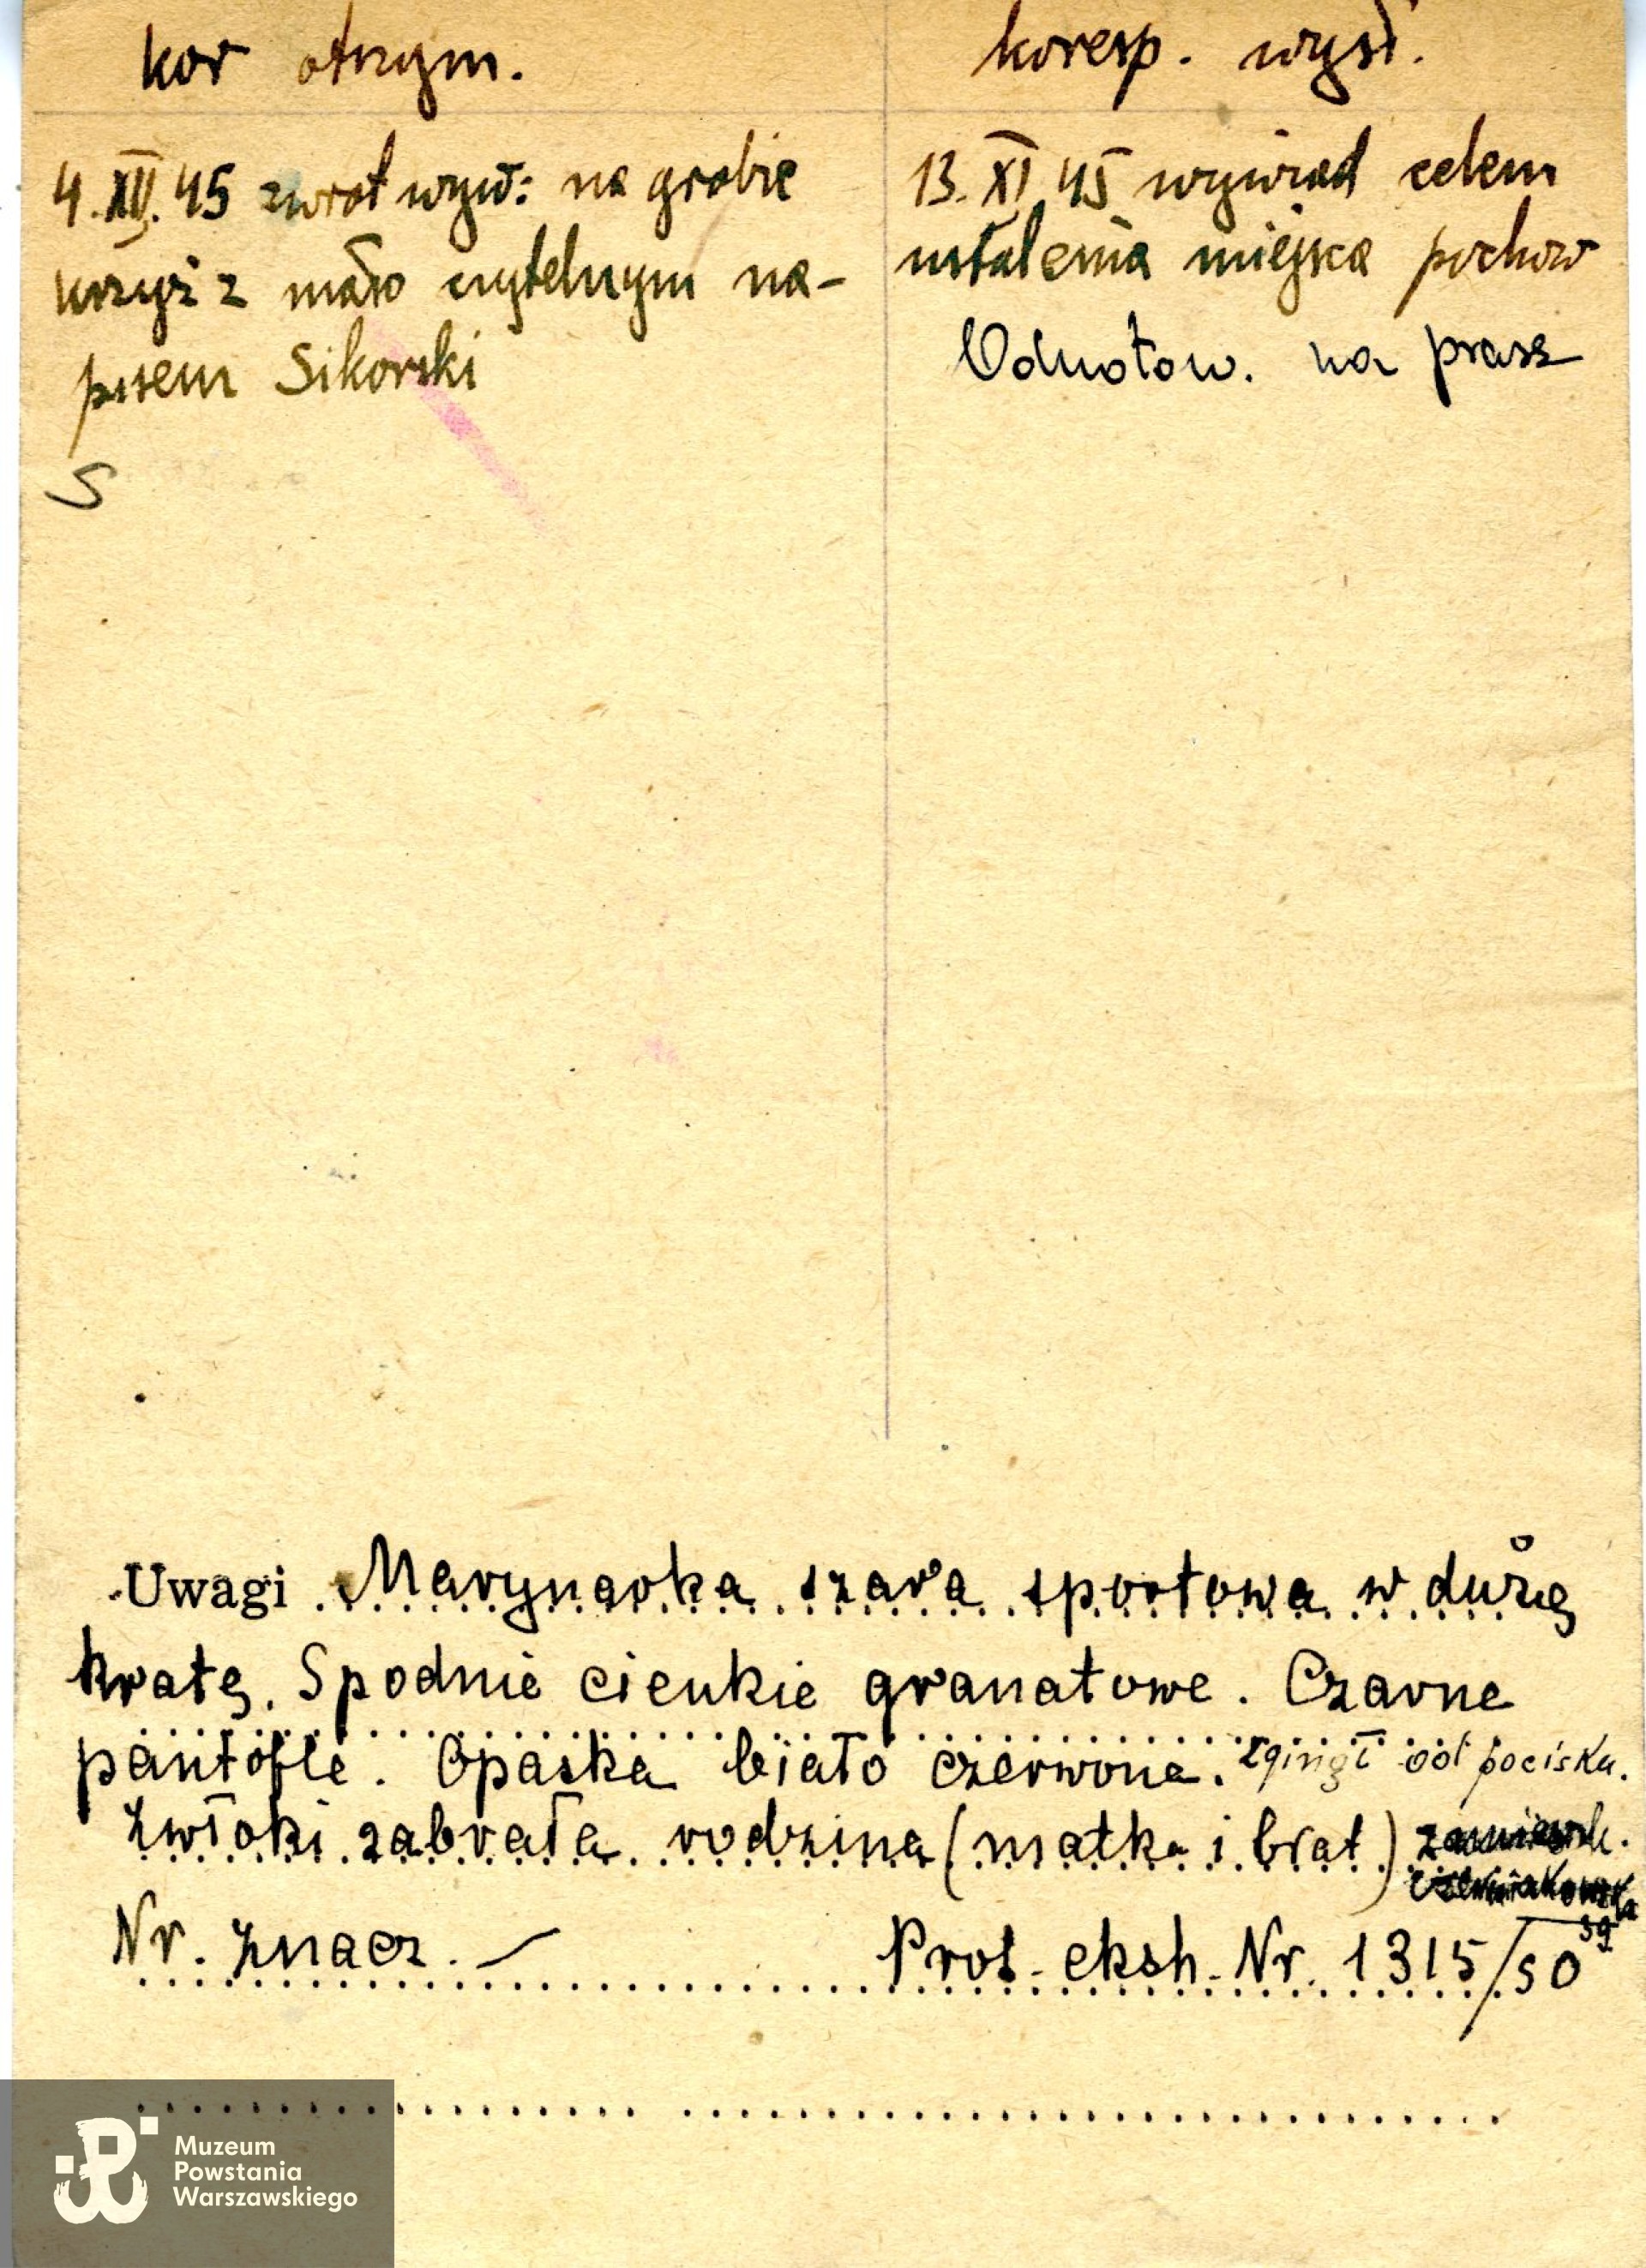 kor otrzym.
4.XII.45 zwrot wyw: na grobie
krzyż z mało czytelnym na-
pisem Sikorski
S
koresp. wysł.
13.XI 45 wywiad celem
ustalenia miejsca pochow
Odnotow. na prasę
Uwagi Marynarka szara sportowa w dużą
kratę. Spodnie cienkie granatowe. Czarne
pantofle. Opaska biało czerwona. zginął od pocisku.
Zwłoki zabrała rodzina (matka i brat) zamieszk.
Czerniakowska
39
Nr. znacz. — Prot. eksh. Nr. 1315/50
Muzeum
Powstania
Warszawskiego